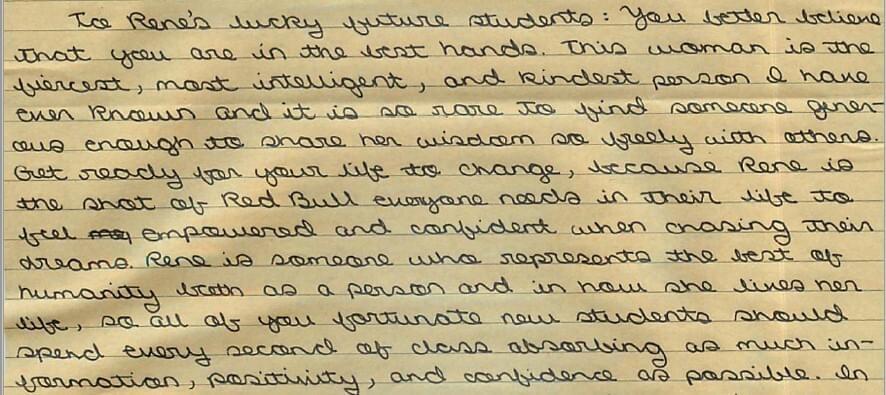 To Rene's lucky future students: You better believe
that you are in the best hands. This woman is the
fiercest, most intelligent, and kindest person I have
ever known and it is so rare to find someone gener-
ous enough to share her wisdom so freely with others.
Get ready for your life to change, because Rene is
the shot of Red Bull everyone needs in their life to
feel empowered and confident when chasing their
dreams. Rene is someone who represents the best of
humanity both as a person and in how she lives her
life, so all of you fortunate new students should
spend every second of class absorbing as much in-
formation, positivity, and confidence as possible. In